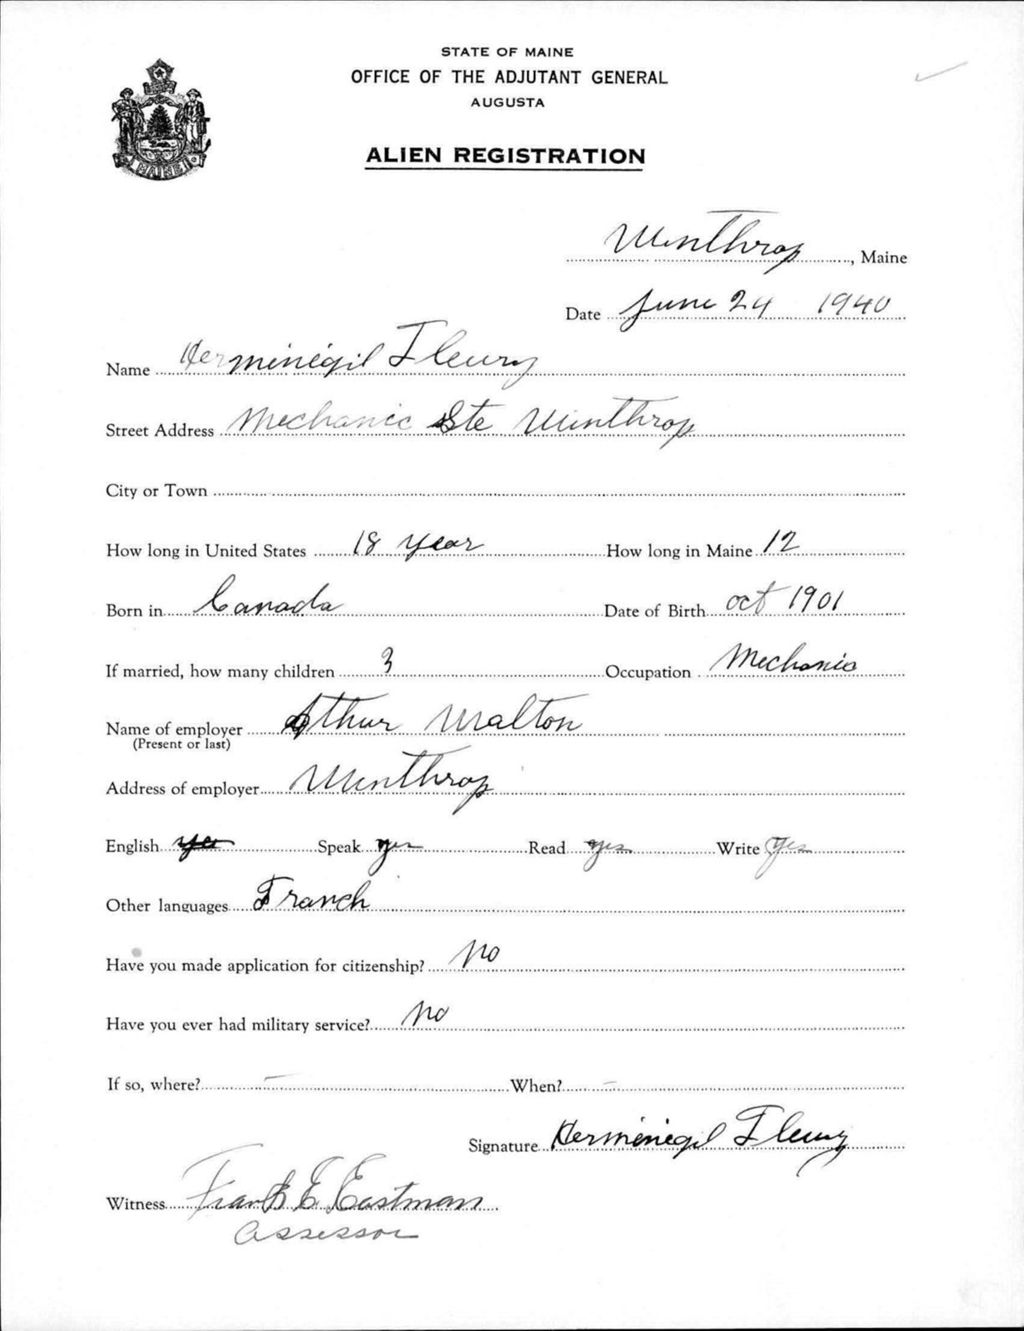 STATE OF MAINE
OFFICE OF THE ADJUTANT GENERAL
AUGUSTA
ALIEN REGISTRATION
MAINE
Winthrop, Maine
Date June 24 1940
Name Herminégil Fleury
Street Address Mechanic Ste Winthrop
City or Town
How long in United States 18 year How long in Maine 12
Born in Canada Date of Birth oct 1901
If married, how many children 3 Occupation Mechanic
Name of employer Athur Walton
(Present or last)
Address of employer Winthrop
English yes Speak yes Read yes Write Yes
Other languages Franch
Have you made application for citizenship? No
Have you ever had military service? No
If so, where? – When? –
Signature Herménégil Fleury
Witness Frank E Eastman
Assessor